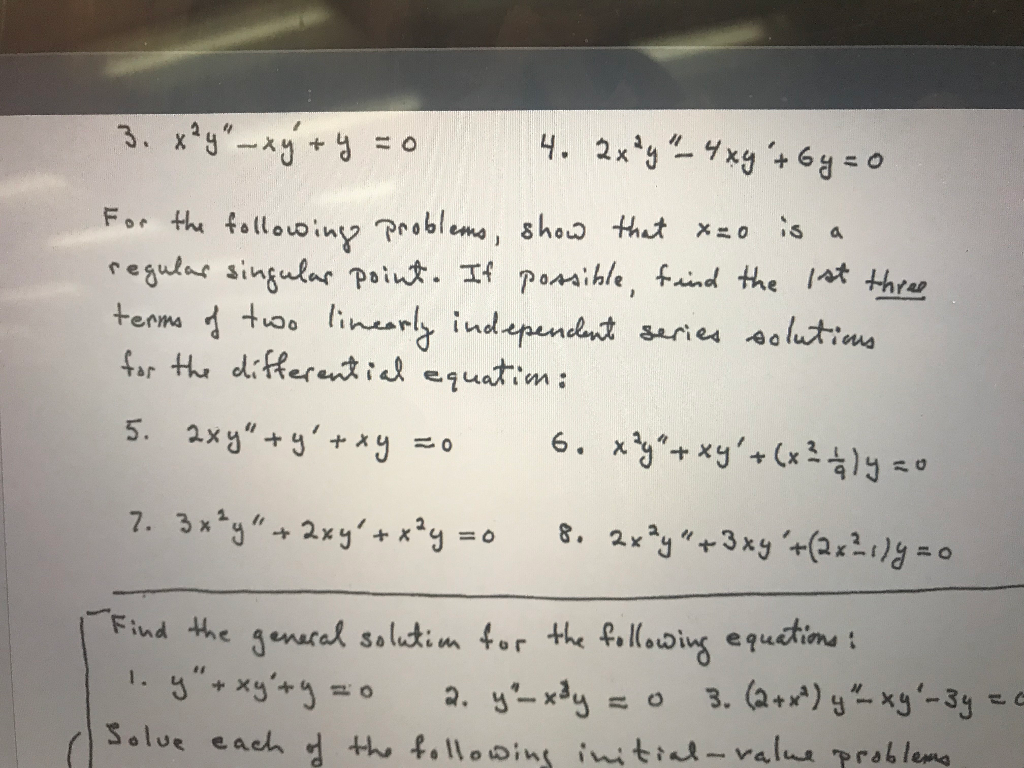 3. x²y" - xy' + y = 0 4. 2x²y" - 4xy' + 6y = 0
For the following problems, show that x=0 is a
regular singular point. If possible, find the 1st three
terms of two linearly independent series solutions
for the differential equation:
5. 2xy" + y' + xy = 0 6. x²y" + xy' + (x² - 1/9)y = 0
7. 3x²y" + 2xy' + x²y = 0 8. 2x²y" + 3xy' + (2x² - 1)y = 0
Find the general solution for the following equations:
1. y" + xy' + y = 0 2. y" - x³y = 0 3. (2+x²)y" - xy' - 3y = 0
Solve each of the following initial-value problems